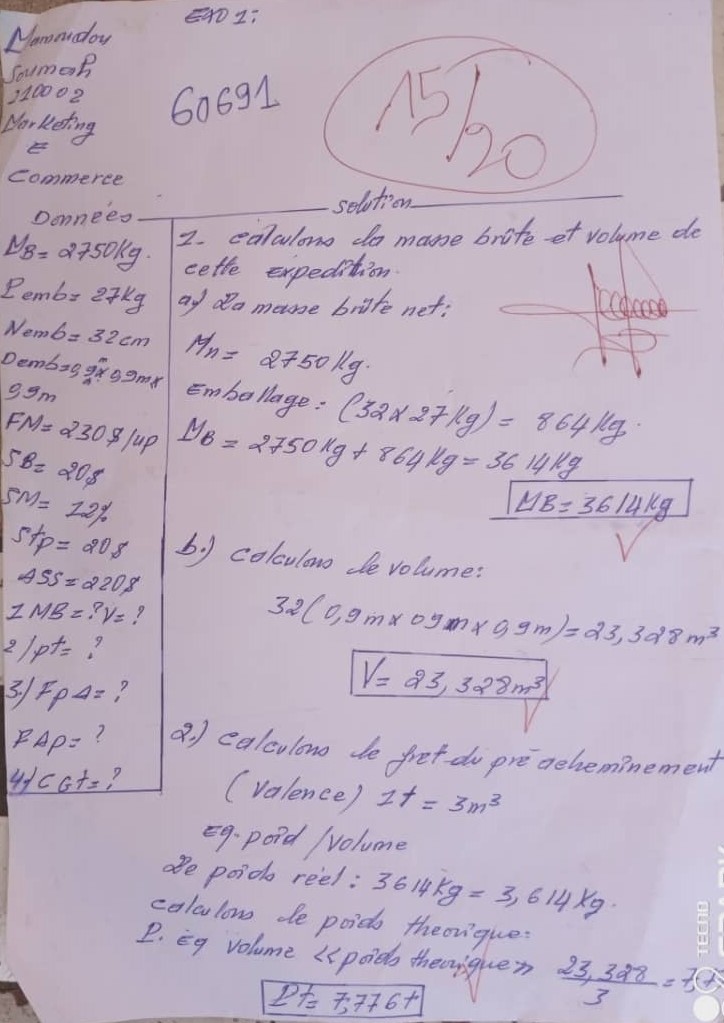 EXO 1:
Mammadou
Soumah
210002
Marketing
E
Commerce
60691
15/20
Données
MB = 2750 Kg.
Pemb = 27 Kg
Nemb = 32 cm
Demb = 0,9m x 0,9m x
0,9m
FM = 230 $/up
SB = 20$
SM = 12%
Stp = 20$
ASS = 220$
1 MB = ? V = ?
2/ pt = ?
3.) FpA = ?
FAp = ?
4) CGt = ?
solution
1- calculons la masse brûte et volume de
cette expedition.
a.) La masse brûte net :
Mn = 2750 Kg.
Emballage : (32 x 27 Kg) = 864 Kg.
MB = 2750 Kg + 864 Kg = 3614 Kg
MB = 3614 Kg
b.) calculons le volume :
32 (0,9m x 09m x 0,9m) = 23,328 m³
V = 23,328 m³
2.) calculons le fret du préacheminement
(Valence) 1t = 3m³
Eq-poid / volume
Le poids réel : 3614 Kg = 3,614 Kg.
calculons le poids theorique :
P. Eq volume << poids theorique >> 23,328 / 3 = 7,7
Pt = 7,776 t
TECNO
SPARK